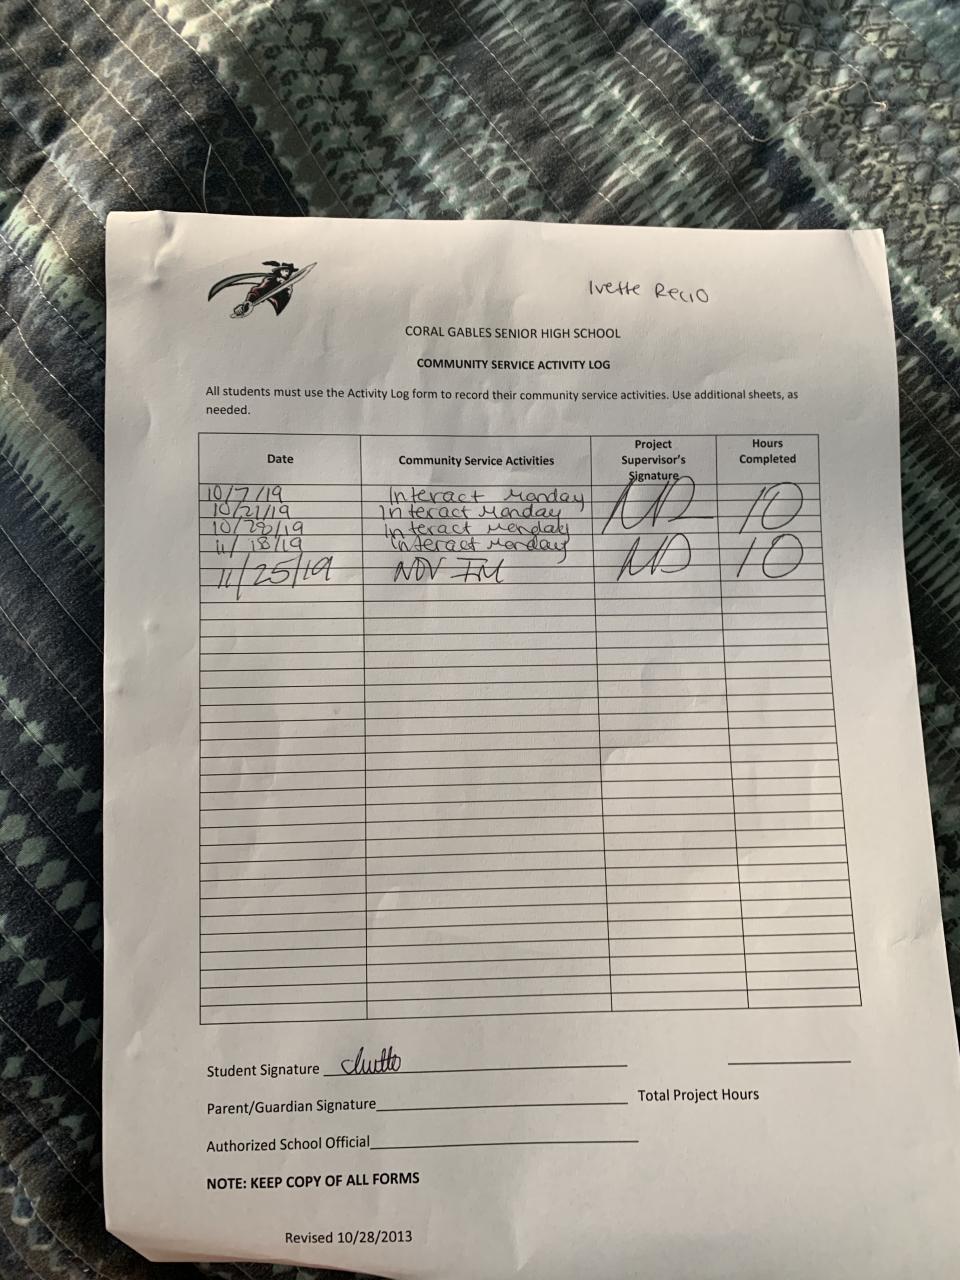 Ivette Recio
CORAL GABLES SENIOR HIGH SCHOOL
COMMUNITY SERVICE ACTIVITY LOG
All students must use the Activity Log form to record their community service activities. Use additional sheets, as
needed.
Date Community Service Activities Project Supervisor's Signature Hours Completed
10/7/19 Interact Monday
10/21/19 Interact Monday 10
10/28/19 Interact Monday
11/18/19 Interact Monday
11/25/19 NOV IM 10
Student Signature
Parent/Guardian Signature Total Project Hours
Authorized School Official
NOTE: KEEP COPY OF ALL FORMS
Revised 10/28/2013